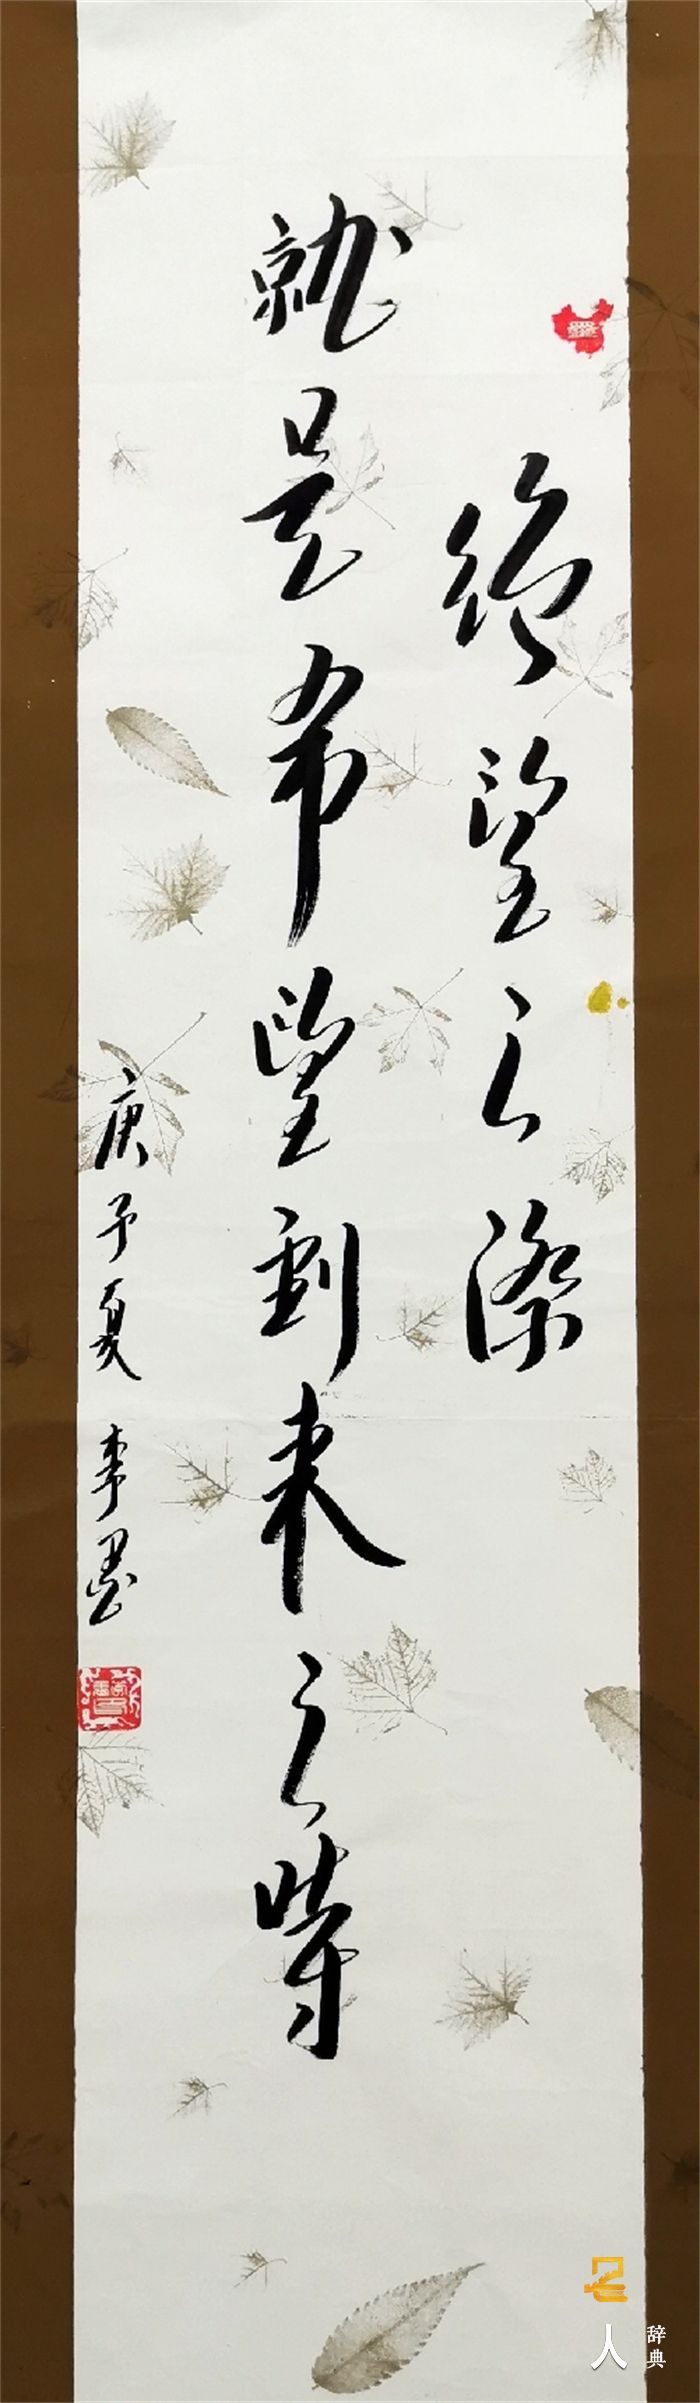 绝望之深
就是希望到来之時
庚子夏
名人
辞典